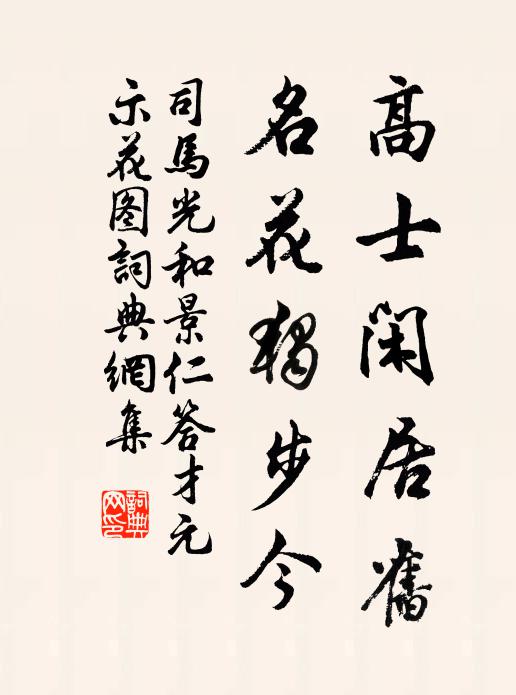 高士閑居舊
名花獨步今
司馬光和景仁答才元
示花图詞典網集
詞典
网印